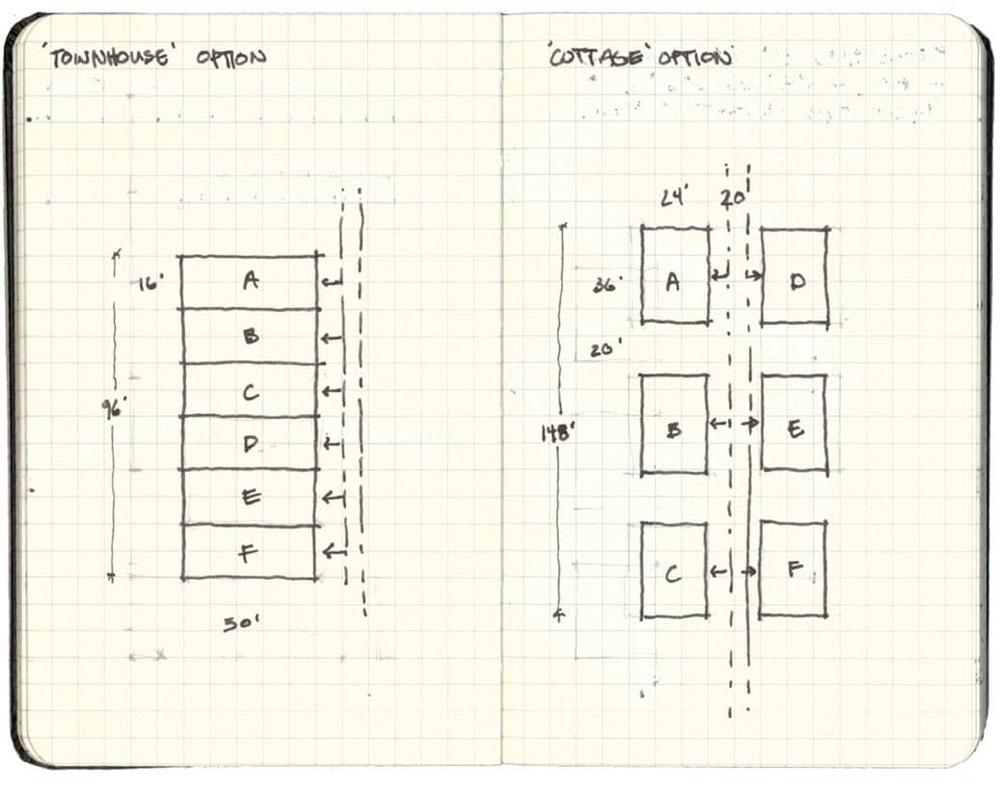 'TOWNHOUSE' OPTION
16'
A
B
C
D
E
F
96'
50'
'COTTAGE' OPTION
24' 20'
36'
A
D
20'
148'
B
E
C
F